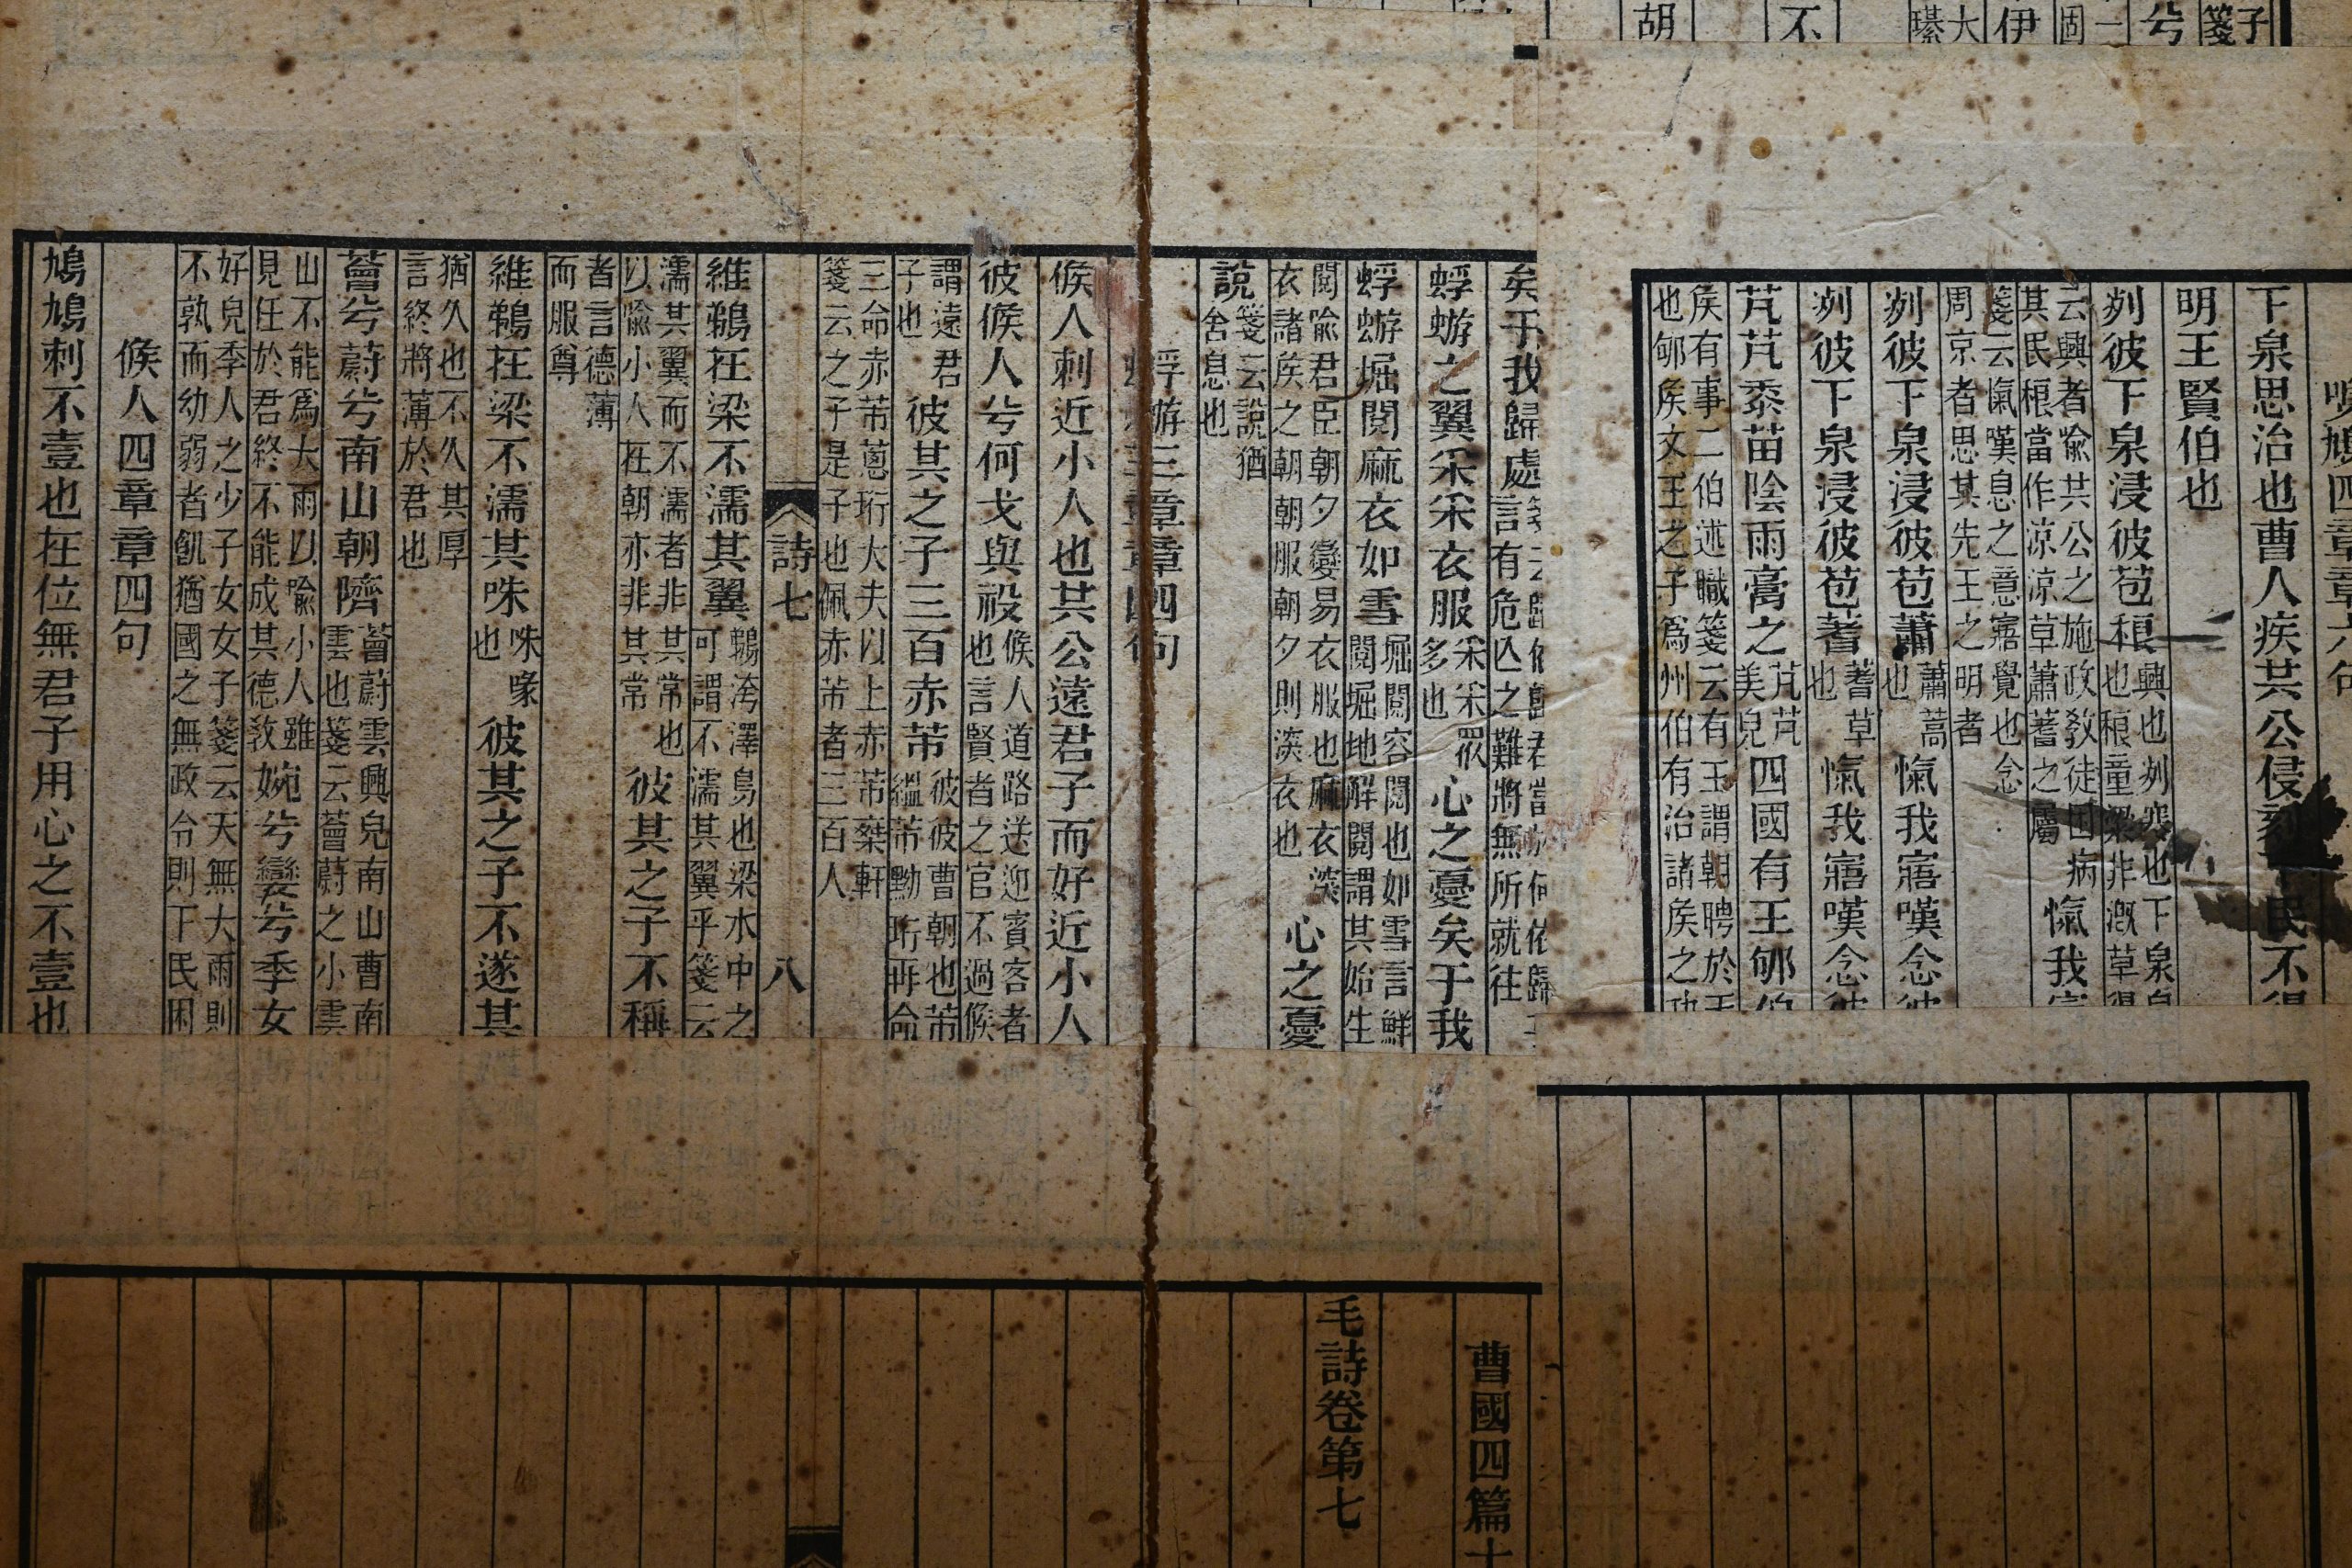 子
箋
兮
一
固
伊
大
瑧
不
胡
鳲鳩四章章六句
下泉思治也曹人疾共公侵刻下民不得
明王賢伯也
冽彼下泉浸彼苞稂
興也冽寒也下泉泉
也稂童粱非溉草得
云興者喻共公之施政敎徒困病
其民稂當作涼涼草蕭蓍之屬
愾我寤
箋云愾嘆息之意寤覺也念
周京者思其先王之明者
冽彼下泉浸彼苞蕭
蕭蒿
也
愾我寤嘆念彼
冽彼下泉浸彼苞蓍
蓍草
也
愾我寤嘆念彼
芃芃黍苗陰雨膏之
芃芃
美皃
四國有王郇伯
矦有事二伯述職箋云有王謂朝聘於天
也郇矦文王之子爲州伯有治諸矦之功
矣于我歸處
言有危亾之難將無所就往
蜉蝣之翼采采衣服
采采眾
多也
心之憂矣于我
蜉蝣堀閱麻衣如雪
堀閱容閱也如雪言鮮
閱堀地解閱謂其始生
閱喻君臣朝夕變易衣服也麻衣湥
衣諸矦之朝朝服朝夕則湥衣也
心之憂
說
箋云說猶
舍息也
蜉蝣三章章四句
候人刺近小人也共公遠君子而好近小人
彼候人兮何戈與祋
候人道路送迎賓客者
也言賢者之官不過候
謂遠君
子也
彼其之子三百赤芾
彼彼曹朝也芾
縕芾黝珩再命
三命赤芾蔥珩大夫以上赤芾椉軒
箋云之子是子也佩赤芾者三百人
詩七
八
維鵜在梁不濡其翼
鵜洿澤鳥也梁水中之
可謂不濡其翼乎箋云
濡其翼而不濡者非其常也
以喻小人在朝亦非其常
彼其之子不稱
者言德薄
而服尊
維鵜在梁不濡其咮
咮喙
也
彼其之子不遂其
猶久也不久其厚
言終將薄於君也
薈兮蔚兮南山朝隮
薈蔚雲興皃南山曹南
雲也箋云薈蔚之小雲
山不能爲大雨以喻小人雖
見任於君終不能成其德敎
婉兮孌兮季女
好皃季人之少子女女子箋云天無大雨則
不孰而幼弱者飢猶國之無政令則下民困
候人四章章四句
鳲鳩刺不壹也在位無君子用心之不壹也
曹國四篇十
毛詩卷第七